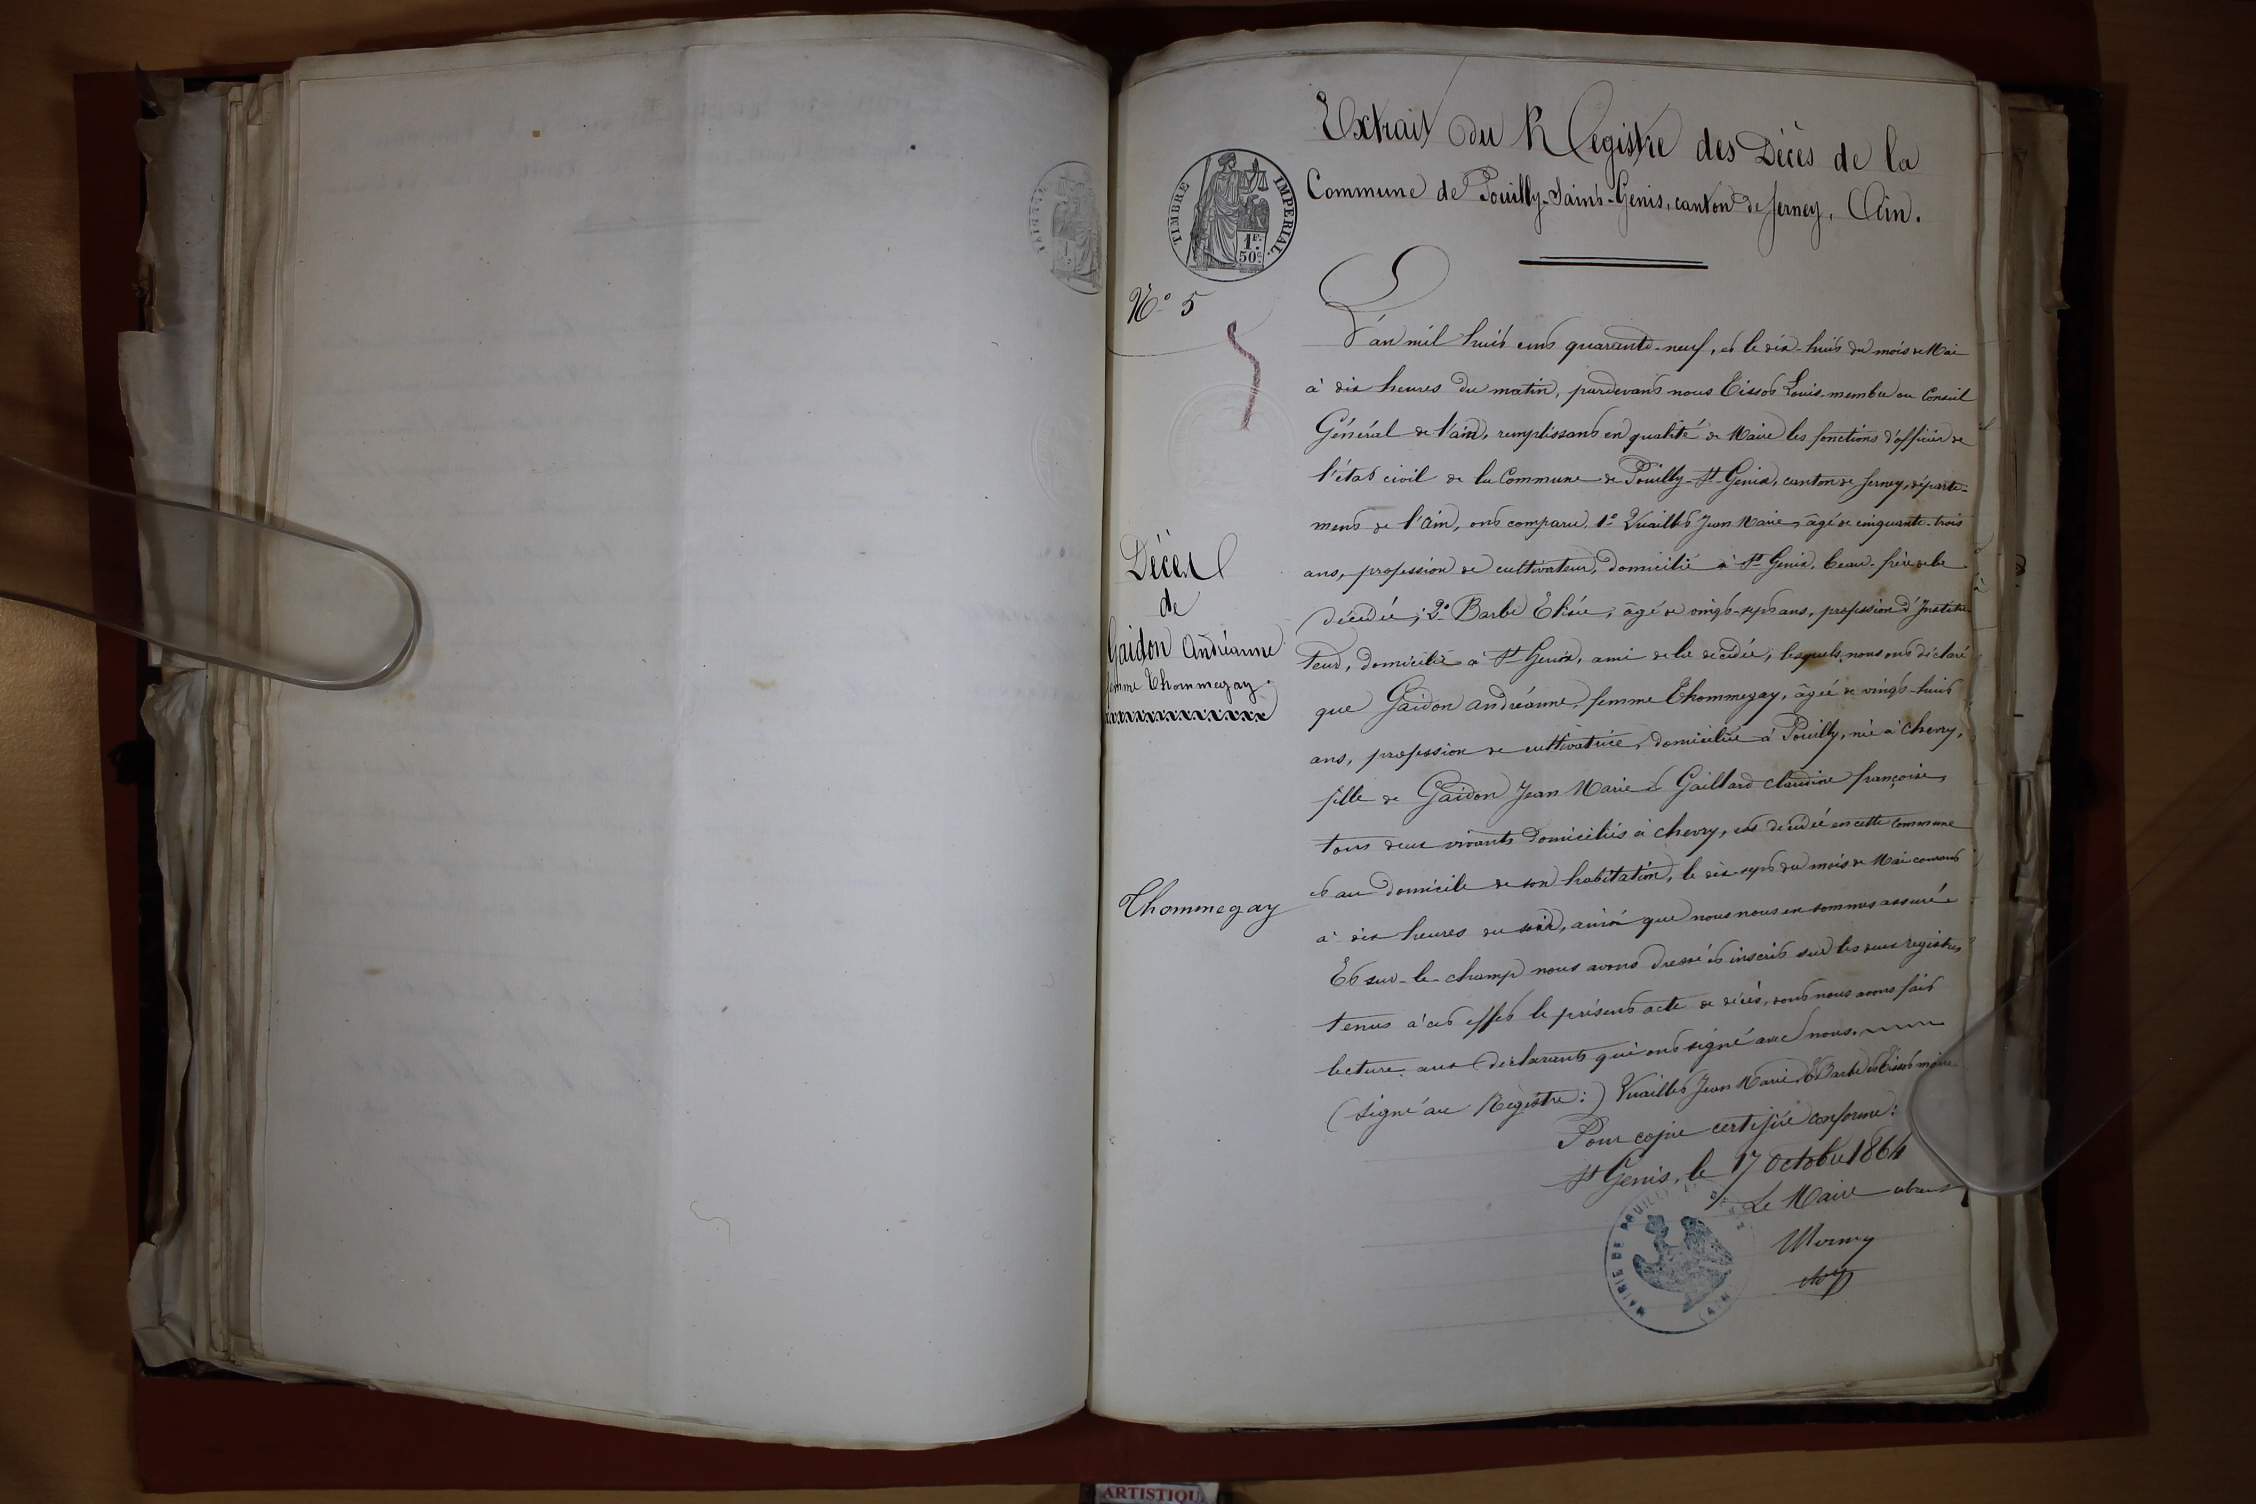 Extrait du Registre des Décès de la
Commune de Pouilly-Saint-Genis, canton de ferney, Ain.
TIMBRE IMPERIAL.
1F.
50c.
N° 5
L'an mil huit cent quarante-neuf, et le dix-huit du mois de Mai
à dix heures du matin, pardevant nous Tissot Louis, membre du Conseil
Général de l'ain, remplissant en qualité de Maire les fonctions d'officier de
l'état civil de la Commune de Pouilly-St-Genis, canton de ferney, départe-
ment de l'Ain, ont comparu, 1° Vuaillet Jean Marie, âgé de cinquante-trois
ans, profession de cultivateur, domicilié à St Genis, beau-frère de la
décédée; 2° Barbe Elisée, âgé de vingt-sept ans, profession d'Institu-
teur, domicilié à St Genis, ami de la décédée, lesquels nous ont déclaré
que Gaidon andréanne, femme Thommegay, âgée de vingt-huit
ans, profession de cultivatrice, domiciliée à Pouilly, née à Chevry,
fille de Gaidon Jean Marie et Gaillard claudine françoise,
tous deux vivants domiciliés à chevry, est décédée en cette commune
et au domicile de son habitation, le dix-sept du mois de Mai courant
à dix heures du soir, ainsi que nous nous en sommes assuré.
Et sur-le-champ nous avons dressé et inscrit sur les deux registres
tenus à cet effet le présent acte de décès, dont nous avons fait
lecture aux déclarants qui ont signé avec nous.
(signé au Registre:) Vuaillet Jean Marie, E. Barbe et Tissot maire
Pour copie certifiée conforme:
St Genis, le 17 Octobre 1864
Le Maire
MAIRIE DE POUILLY
(AIN)
Décès
de
Gaidon Andréanne
femme Thommegay.
Thommegay
ARTISTIQU